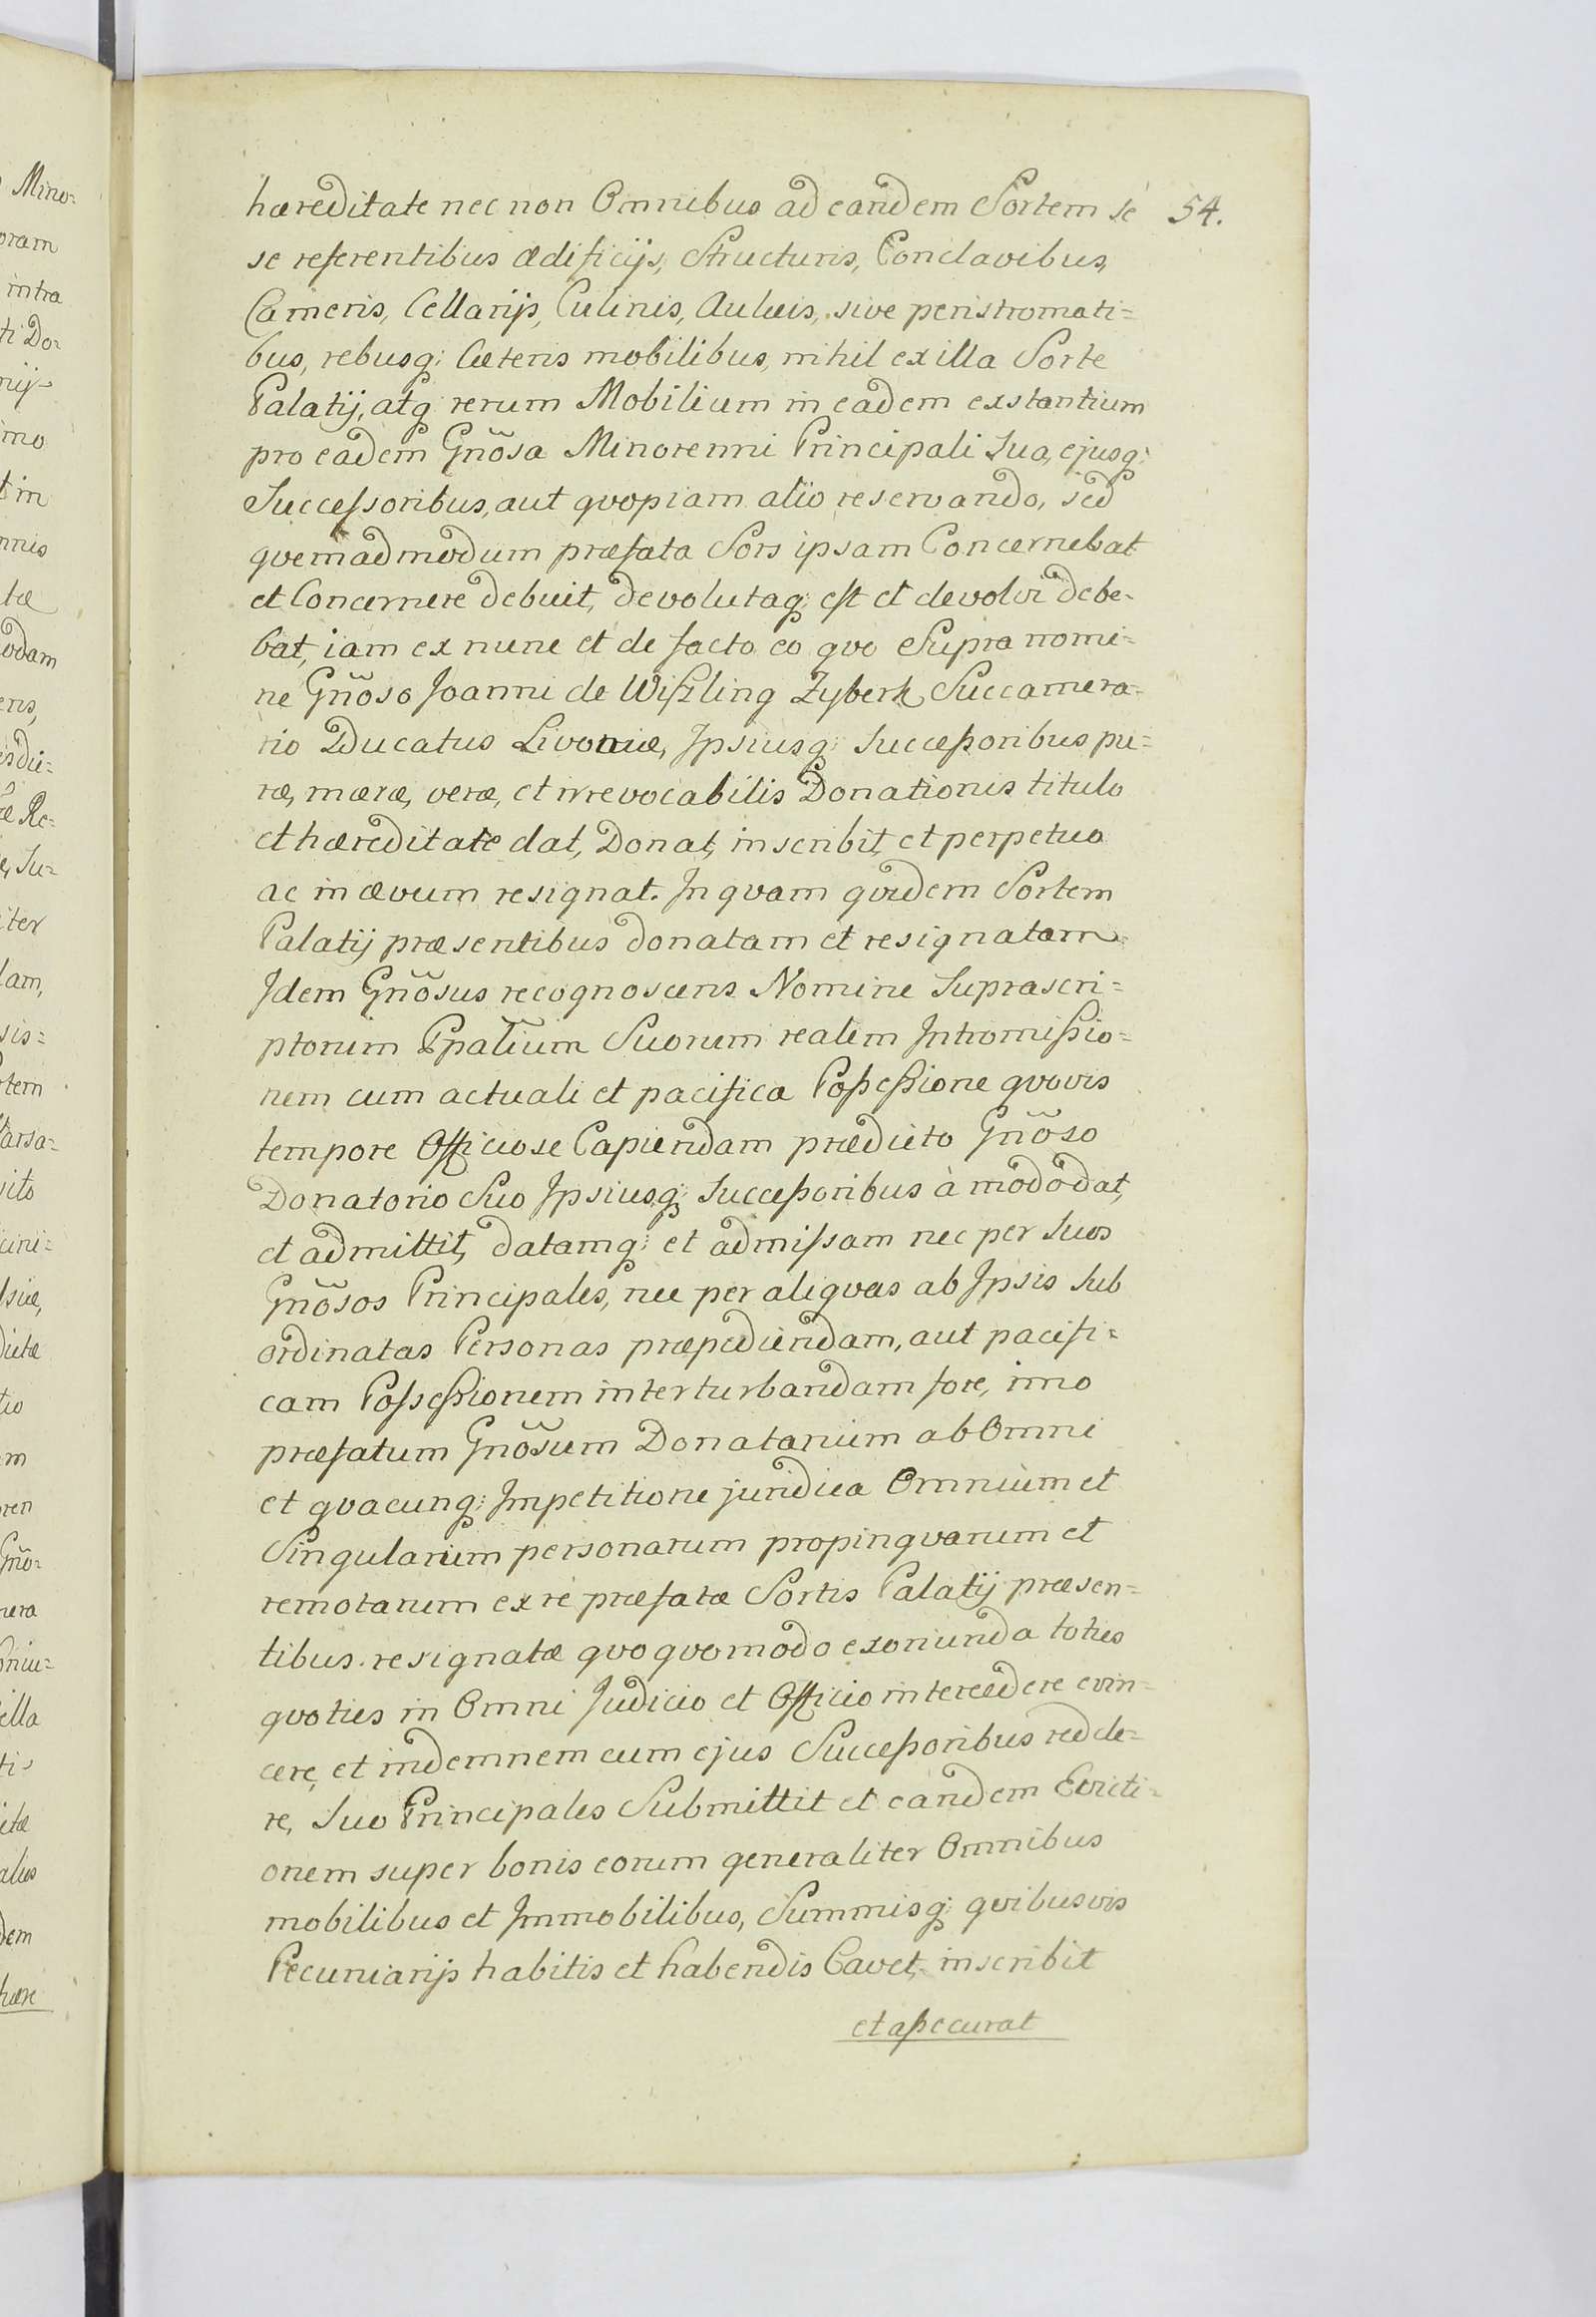 hæreditate nec non Omnibus ad eandem Sortem se 54.
se referentibus ædificijs, Structuris, Conclavibus,
Cameris, Cellarijs, Culinis, Aulæis, sive peristromati=
bus, rebusq; Cæteris mobilibus, nihil ex illa Sorte
Palatij, atq; rerum Mobilium in eadem exstantium
pro eadem Gnõsa Minorenni Principali Sua, ejusq;
Successoribus, aut qvopiam alio reservando, sed
qvemadmodum præfata Sors ipsam Concernebat
et Concernere debuit, devolutaq; est et devolvi debe-
bat, iam ex nunc et de facto eo qvo Supra nomi=
ne Gnõso Joanni de Wiszling Zyberk Succamera-
rio Ducatus Livoniæ, Ipsiusq; Successoribus pu=
ræ, meræ, veræ, et irrevocabilis Donationis titulo
et hæreditate dat, Donat, inscribit, et perpetuo
ac in ævum resignat. In qvam qvidem Sortem
Palatij præsentibus donatam et resignatam
Idem Gnõsus recognoscens Nomine Suprascri=
ptorum Ppalium Suorum realem Intromissio=
nem cum actuali et pacifica Possessione qvovis
tempore Officiose Capiendam prædicto Gnõso
Donatorio Suo Ipsiusq; Successoribus à modo dat,
et admittit, datamq; et admissam nec per Suos
Gnõsos Principales, nec per aliqvas ab Ipsis Sub
ordinatas Personas præpediendam, aut pacifi=
cam Possessionem interturbandam fore, imo
præfatum Gnõsum Donatarium ab Omni
et qvacunq; Impetitione juridica Omnium et
Singularum personarum propinqvarum et
remotarum ex re præfatæ Sortis Palatij præsen=
tibus resignatæ qvoqvomodo exoriunda toties
qvoties in Omni Judicio et Officio intercedere evin=
cere, et indemnem cum ejus Successoribus redde=
re, Suo Principales Submittit et eandem Evicti=
onem super bonis eorum generaliter Omnibus
mobilibus et Immobilibus, Summisq; qvibusvis
Pecuniarijs habitis et habendis Cavet, inscribit
et assecurat